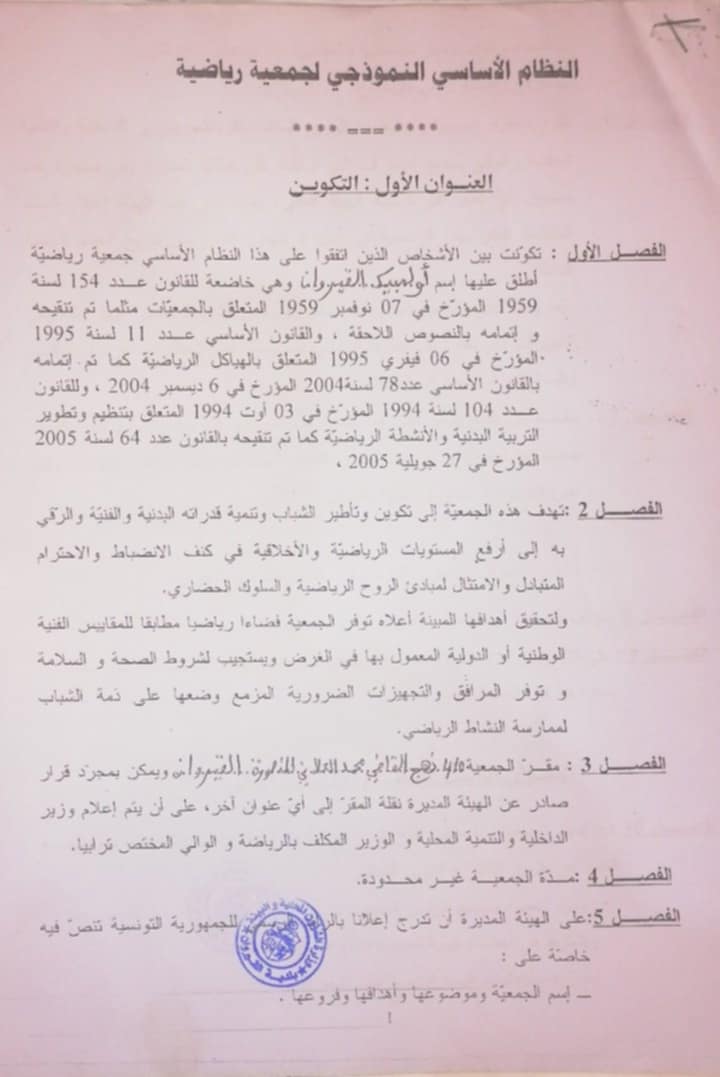 النظام الأساسي النموذجي لجمعية رياضية
**** === ****
العنـوان الأول : التكويـن
الفصـل الأول : تكوّنت بين الأشخاص الذين اتفقوا على هذا النظام الأساسي جمعية رياضيّة
أطلق عليها إسم أولمبيك القيروان وهي خاضعة للقانون عـدد 154 لسنة
1959 المؤرّخ في 07 نوفمبر 1959 المتعلق بالجمعيّات مثلما تم تنقيحه
و إتمامه بالنصوص اللاحقة ، والقانون الأساسي عـدد 11 لسنة 1995
المؤرّخ في 06 فيفري 1995 المتعلق بالهياكل الرياضيّة كما تم إتمامه
بالقانون الأساسي عدد78 لسنة2004 المؤرخ في 6 ديسمبر 2004 ، وللقانون
عـدد 104 لسنة 1994 المؤرّخ في 03 أوت 1994 المتعلق بتنظيم وتطوير
التربية البدنية والأنشطة الرياضيّة كما تم تنقيحه بالقانون عدد 64 لسنة 2005
المؤرخ في 27 جويلية 2005 ،
الفصـل 2 :تهدف هذه الجمعيّة إلى تكوين وتأطير الشباب وتنمية قدراته البدنية والفنيّة والرّقي
به إلى أرفع المستويات الرياضيّة والأخلاقية في كنف الانضباط والاحترام
المتبادل والامتثال لمبادئ الروح الرياضية والسلوك الحضاري.
ولتحقيق أهدافها المبينة أعلاه توفر الجمعية فضاءا رياضيا مطابقا للمقاييس الفنية
الوطنية أو الدولية المعمول بها في الغرض ويستجيب لشروط الصحة و السلامة
و توفر المرافق والتجهيزات الضرورية المزمع وضعها على ذمة الشباب
لممارسة النشاط الرياضي.
الفصـل 3 : مقـرّ الجمعية نهج القاضي محمد العلاني المنصورة القيروان ويمكن بمجرّد قرار
صادر عن الهيئة المديرة نقلة المقرّ إلى أيّ عنوان آخر، على أن يتم إعلام وزير
الداخلية والتنمية المحلية و الوزير المكلف بالرياضة و الوالي المختص ترابيا.
الفصـل 4 :مـدّة الجمعيـة غيـر محـدودة.
الفصـل 5:على الهيئة المديرة أن تدرج إعلانا للجمهورية التونسية تنصّ فيه
خاصّة على :
– إسم الجمعيّة وموضوعها وأهدافها وفروعها .
1